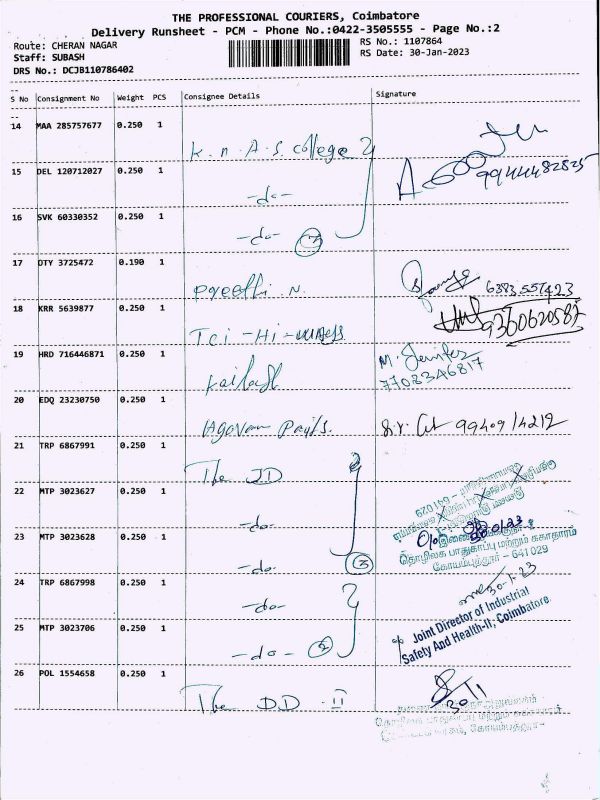 THE PROFESSIONAL COURIERS, Coimbatore
Delivery Runsheet - PCM - Phone No.:0422-3505555 - Page No.:2
Route: CHERAN NAGAR
RS No.: 1107864
Staff: SUBASH
RS Date: 30-Jan-2023
DRS No.: DCJB110786402
S No Consignment No Weight PCS Consignee Details Signature
14 MAA 285757677 0.250 1 K. n. A. S. College
15 DEL 120712027 0.250 1 -do- 9944482825
16 SVK 60330352 0.250 1 -do- 3
17 DTY 3725472 0.190 1 Preethi. N. 6383557423
18 KRR 5639877 0.250 1 Tci - Hi - 9360620587
19 HRD 716446871 0.250 1 Kailash M. Jenifer
7708346817
20 EDQ 23230750 0.250 1 99409 14212
21 TRP 6867991 0.250 1 The JD
22 MTP 3023627 0.250 1 -do-
23 MTP 3023628 0.250 1 -do- 3
தொழிலக பாதுகாப்பு மற்றும் சுகாதாரம்
கோயம்புத்தூர் - 641 029
24 TRP 6867998 0.250 1 -do- 30-1-23
25 MTP 3023706 0.250 1 -do- 2
Joint Director of Industrial
Safety And Health-II, Coimbatore
26 POL 1554658 0.250 1 The DD - II